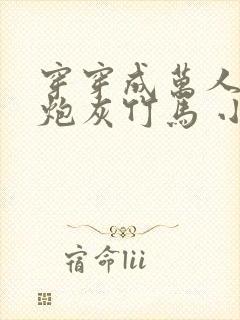 穿穿成萬人
炮灰竹馬 小
宿命lii